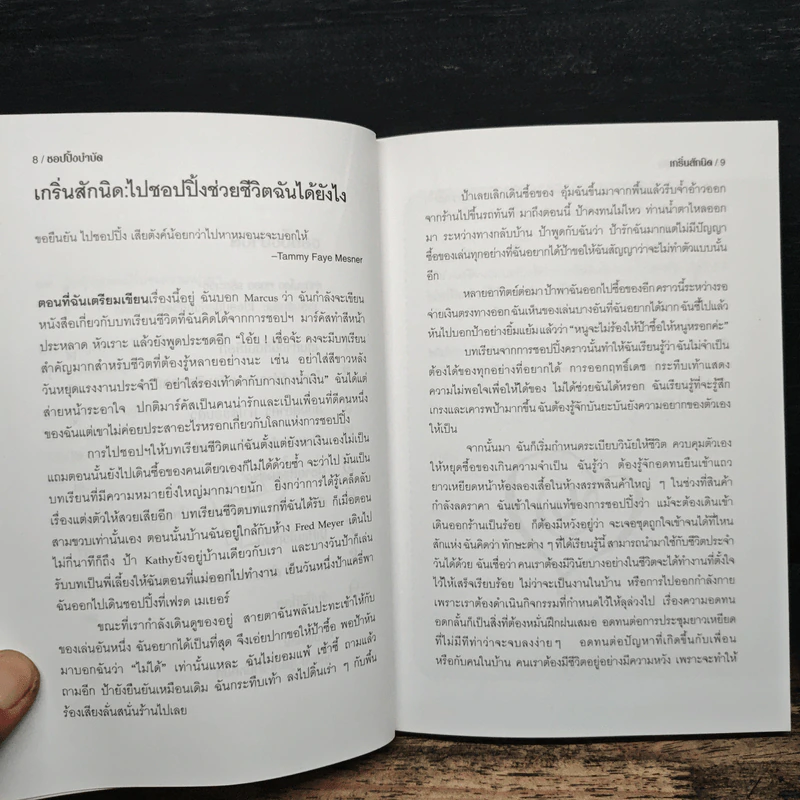 8 / ชอปปิ้งบำบัด
เกริ่นสักนิด:ไปชอปปิ้งช่วยชีวิตฉันได้ยังไง
ขอยืนยัน ไปชอปปิ้ง เสียตังค์น้อยกว่าไปหาหมอนะจะบอกให้
–Tammy Faye Mesner
ตอนที่ฉันเตรียมเขียนเรื่องนี้อยู่ ฉันบอก Marcus ว่า ฉันกำลังจะเขียน
หนังสือเกี่ยวกับบทเรียนชีวิตที่ฉันคิดได้จากการชอปฯ มาร์คัสทำสีหน้า
ประหลาด หัวเราะ แล้วยังพูดประชดอีก "โอ้ย ! เชื่อจ้ะ คงจะมีบทเรียน
สำคัญมากสำหรับชีวิตที่ต้องรู้หลายอย่างนะ เช่น อย่าใส่สีขาวหลัง
วันหยุดแรงงานประจำปี อย่าใส่รองเท้าดำกับกางเกงน้ำเงิน" ฉันได้แต่
ส่ายหน้าระอาใจ ปกติมาร์คัสเป็นคนน่ารักและเป็นเพื่อนที่ดีคนหนึ่ง
ของฉันแต่เขาไม่ค่อยประสาอะไรหรอกเกี่ยวกับโลกแห่งการชอปปิ้ง
การไปชอปฯให้บทเรียนชีวิตแก่ฉันตั้งแต่ยังหาเงินเองไม่เป็น
แถมตอนนั้นยังไปเดินซื้อของคนเดียวเองก็ไม่ได้ด้วยซ้ำ จะว่าไป มันเป็น
บทเรียนที่มีความหมายยิ่งใหญ่มากมายนัก ยิ่งกว่าการได้รู้เคล็ดลับ
เรื่องแต่งตัวให้สวยเสียอีก บทเรียนชีวิตบทแรกที่ฉันได้รับ ก็เมื่อตอน
สามขวบเท่านั้นเอง ตอนนั้นบ้านฉันอยู่ใกล้กับห้าง Fred Meyer เดินไป
ไม่กี่นาทีก็ถึง ป้า Kathyยังอยู่บ้านเดียวกับเรา และบางวันป้าก็เล่น
รับบทเป็นพี่เลี้ยงให้ฉันตอนที่แม่ออกไปทำงาน เย็นวันหนึ่งป้าแคธี่พา
ฉันออกไปเดินชอปปิ้งที่เฟรด เมเยอร์
ขณะที่เรากำลังเดินดูของอยู่ สายตาฉันพลันปะทะเข้าให้กับ
ของเล่นอันหนึ่ง ฉันอยากได้เป็นที่สุด จึงเอ่ยปากขอให้ป้าซื้อ พอป้าหัน
มาบอกฉันว่า "ไม่ได้" เท่านั้นแหละ ฉันไม่ยอมแพ้ เซ้าซี้ ถามแล้ว
ถามอีก ป้ายังยืนยันเหมือนเดิม ฉันกระทืบเท้า ลงไปดิ้นเร่า ๆ กับพื้น
ร้องเสียงลั่นสนั่นร้านไปเลย
เกริ่นสักนิด / 9
ป้าเลยเลิกเดินซื้อของ อุ้มฉันขึ้นมาจากพื้นแล้วรีบจ้ำอ้าวออก
จากร้านไปขึ้นรถทันที มาถึงตอนนี้ ป้าคงทนไม่ไหว ท่านน้ำตาไหลออก
มา ระหว่างทางกลับบ้าน ป้าพูดกับฉันว่า ป้ารักฉันมากแต่ไม่มีปัญญา
ซื้อของเล่นทุกอย่างที่ฉันอยากได้ป้าขอให้ฉันสัญญาว่าจะไม่ทำตัวแบบนั้น
อีก
หลายอาทิตย์ต่อมาป้าพาฉันออกไปซื้อของอีก คราวนี้ระหว่างรอ
จ่ายเงินตรงทางออกฉันเห็นของเล่นบางอันที่ฉันอยากได้มาก ฉันชี้ไปแล้ว
หันไปบอกป้าอย่างยิ้มแย้มแล้วว่า "หนูจะไม่ร้องให้ป้าซื้อให้หนูหรอกค่ะ"
บทเรียนจากการชอปปิ้งคราวนั้นทำให้ฉันเรียนรู้ว่าฉันไม่จำเป็น
ต้องได้ของทุกอย่างที่อยากได้ การออกฤทธิ์เดช กระทืบเท้าแสดง
ความไม่พอใจเพื่อให้ได้ของ ไม่ได้ช่วยฉันได้หรอก ฉันเรียนรู้ที่จะรู้สึก
เกรงและเคารพป้ามากขึ้น ฉันต้องรู้จักบันยะบันยังความอยากของตัวเอง
ให้เป็น
จากนั้นมา ฉันก็เริ่มกำหนดระเบียบวินัยให้ชีวิต ควบคุมตัวเอง
ให้หยุดซื้อของเกินความจำเป็น ฉันรู้ว่า ต้องรู้จักอดทนยืนเข้าแถว
ยาวเหยียดหน้าห้องลองเสื้อในห้างสรรพสินค้าใหญ่ ๆ ในช่วงที่สินค้า
กำลังลดราคา ฉันเข้าใจแก่นแท้ของการชอปปิ้งว่า แม้จะต้องเดินเข้า
เดินออกร้านเป็นร้อย ก็ต้องมีหวังอยู่ว่า จะเจอชุดถูกใจเข้าจนได้ที่ไหน
สักแห่ง ฉันคิดว่า ทักษะต่าง ๆ ที่ได้เรียนรู้นี้ สามารถนำมาใช้กับชีวิตประจำ
วันได้ด้วย ฉันเชื่อว่า คนเราต้องมีวินัยบางอย่างในชีวิตจะได้ทำงานที่ตั้งใจ
ไว้ให้เสร็จเรียบร้อย ไม่ว่าจะเป็นงานในบ้าน หรือการไปออกกำลังกาย
เพราะเราต้องดำเนินกิจกรรมที่กำหนดไว้ให้ลุล่วงไป เรื่องความอดทน
อดกลั้นก็เป็นสิ่งที่ต้องหมั่นฝึกฝนเสมอ อดทนต่อการประชุมยาวเหยียด
ที่ไม่มีทีท่าว่าจะจบลงง่ายๆ อดทนต่อปัญหาที่เกิดขึ้นกับเพื่อน
หรือกับคนในบ้าน คนเราต้องมีชีวิตอยู่อย่างมีความหวัง เพราะจะทำให้